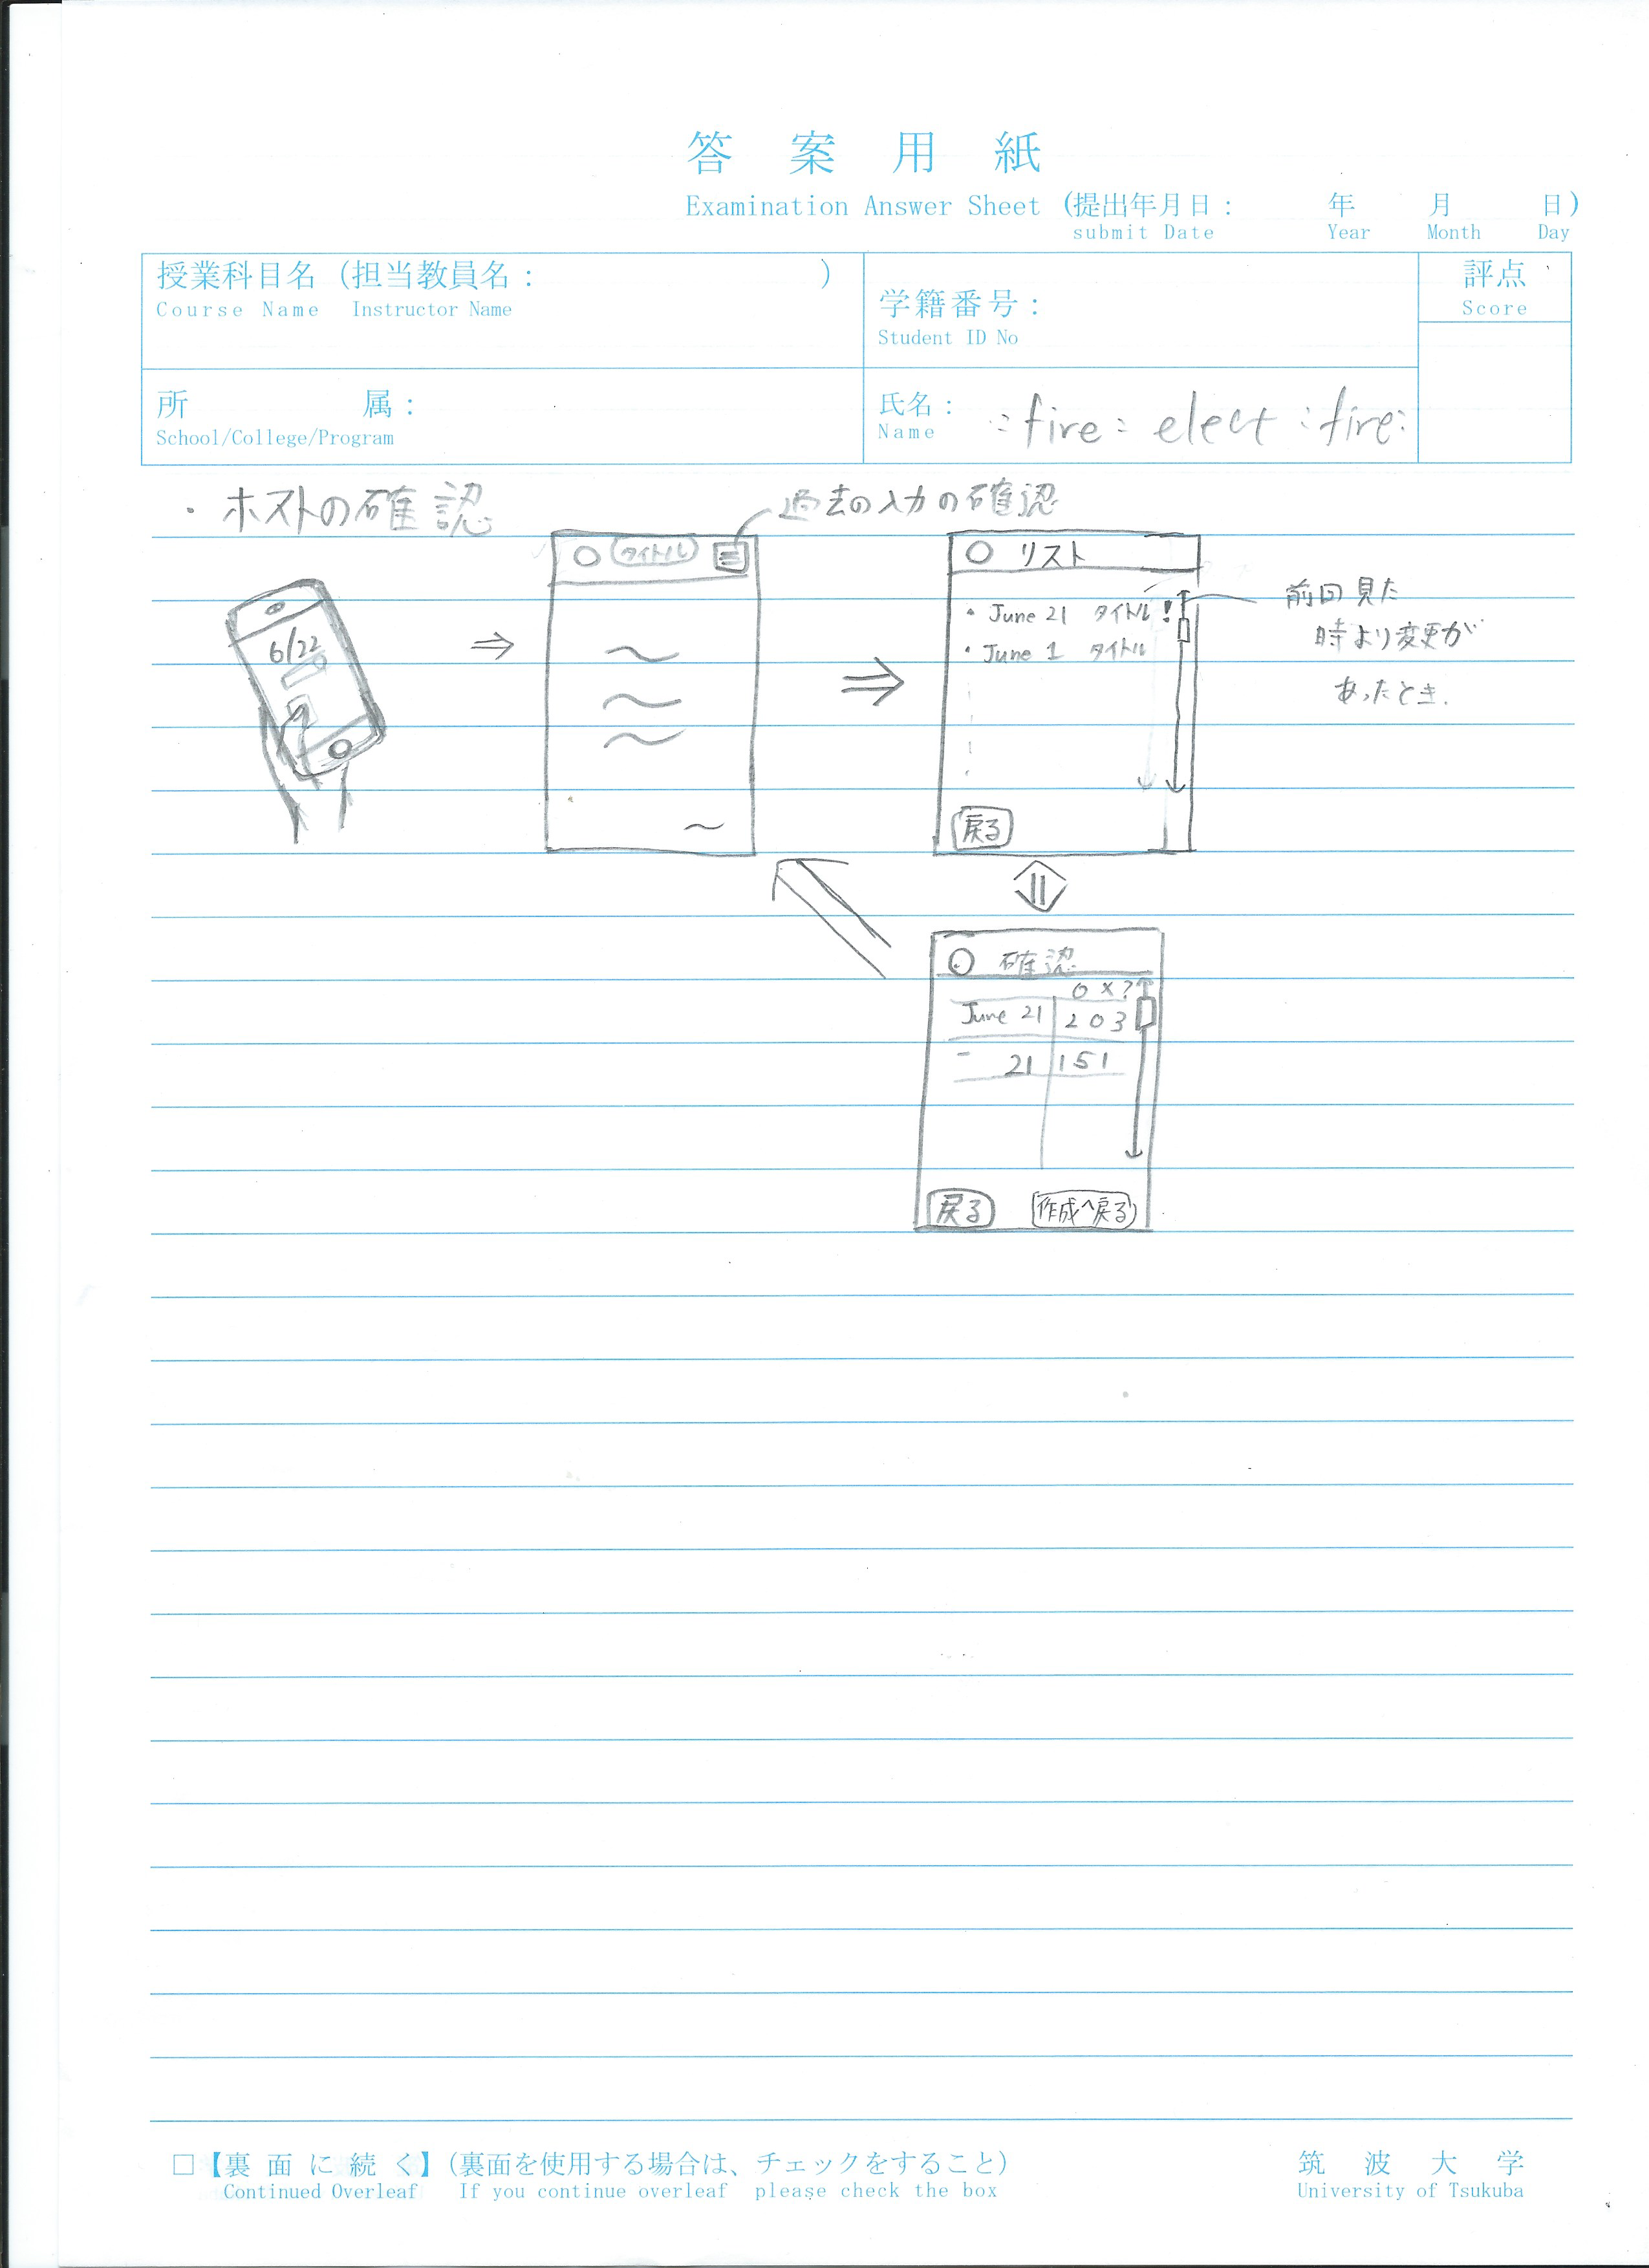 答案用紙
Examination Answer Sheet (提出年月日: 年 月 日)
submit Date Year Month Day
授業科目名(担当教員名: )
Course Name Instructor Name
学籍番号:
Student ID No
評点
Score
所属:
School/College/Program
氏名: :fire: elect :fire:
Name
・ホストの確認
過去の入力の確認
6/22
タイトル
リスト
・June 21 タイトル !
・June 1 タイトル
戻る
前回見た
時より変更が
あったとき.
確認
○ × ?
June 21 2 0 3
〃 21 1 5 1
戻る 作成へ戻る
□【裏面に続く】(裏面を使用する場合は、チェックをすること)
Continued Overleaf If you continue overleaf please check the box
筑波大学
University of Tsukuba